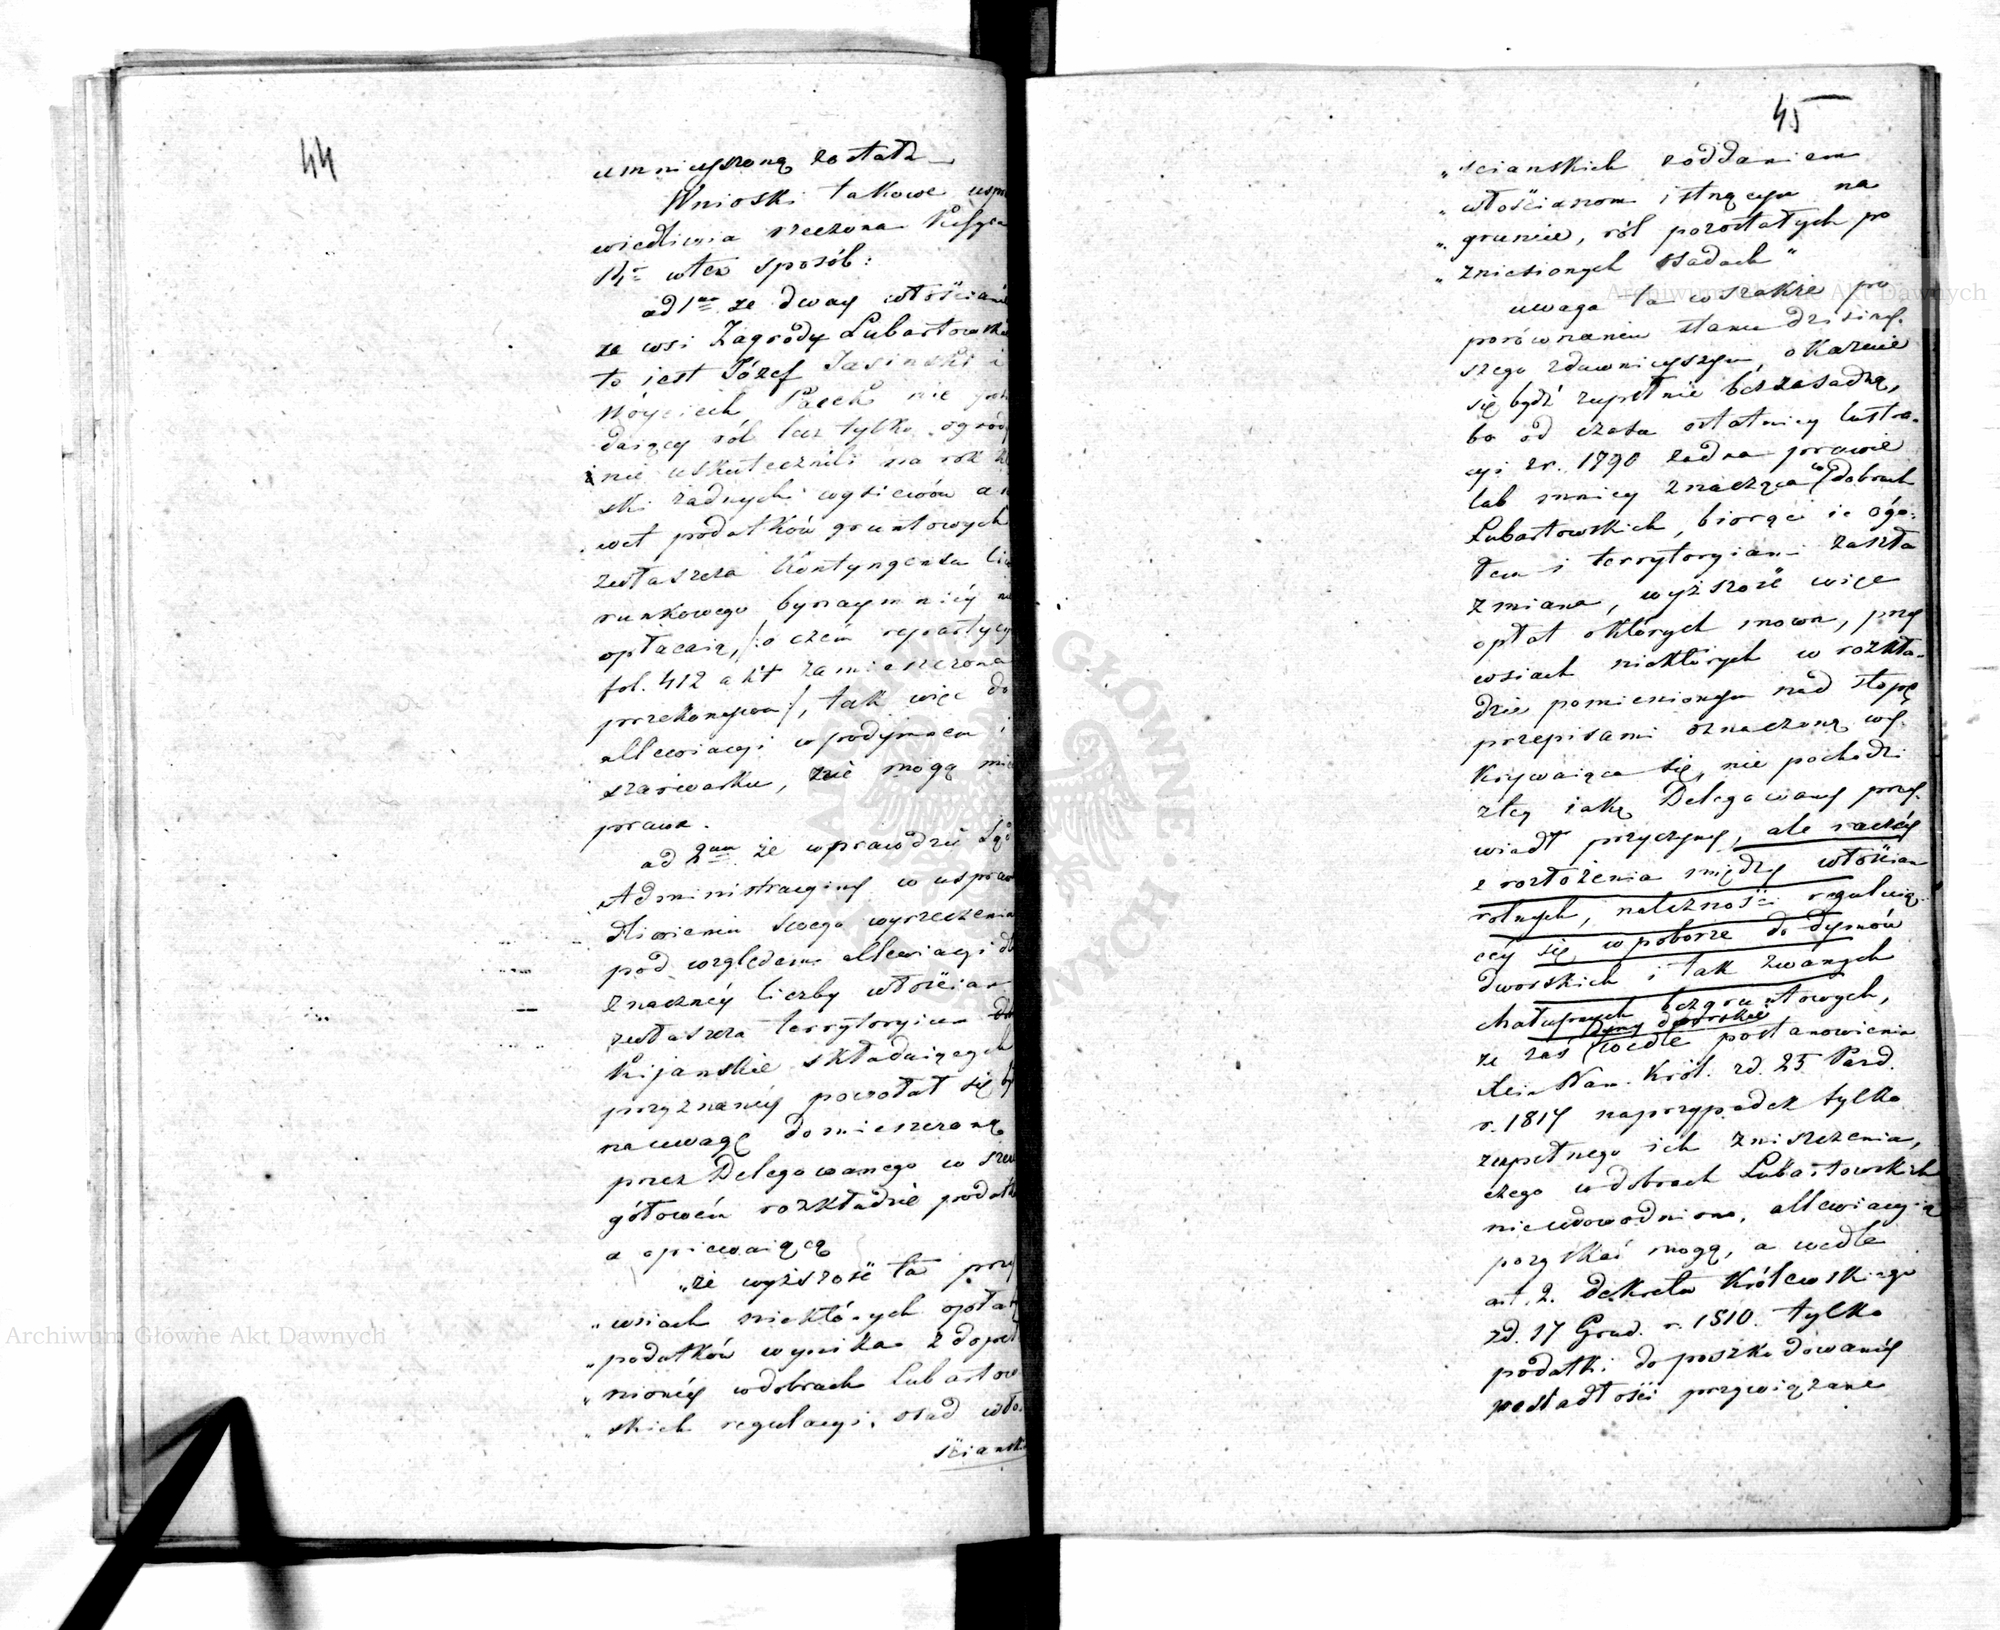 44
umnieyszoną została
Wnioski takowe uspra
wiedliwia rzeczona
14 wten sposób:
ad 1mo że dway włościanie
ze wsi Zagrody Lubartowskie
to jest Józef Jasinski i
Woyciech Pacek nie posia
daiący ról lecz tylko ogrody
nie uskutecznili na rok
ski żadnych wysiewów a na
wet podatków gruntowych
zwłaszcza Kontyngensu Liwe
runkowego bynaymniéy nie
opłacaią, /:o czém repartycya
fol. 412 akt zamieszczona
przekonywa:/, tak więc do
allewiacyi w podymném i
szarwarku, nie mogą mieć
prawa.
ad 2um że wprawdzie Sąd
Administracyiny w uspraw
dliwieniu swego wyrzeczenia
pod względem allewiacyi dla
znacznéy liczby włościan
zwłaszcza terrytoryum
Kijanskie składaiących
przyznanéy powołał się
na uwagę domieszczoną
przez Delegowanego w szcze
gółowém rozkładzie podatku
a opiewaiącą
„że wyższość ta przy
„wsiach niektórych opłat
„podatków wynika z dopeł
„nionéy wdobrach Lubartow
„skich regulacyi, osad wło
ścianski
45
„scianskich zoddaniem
„włościanom istnącym na
„gruncie, ról pozostałych po
„zniesionych osadach"
uwaga ta wszakże po
porównaniu stanu dzisiey
szego zdawnieyszym, okazuie
się bydź zupełnie bezzasadną,
bo od czasu ostatniey lustra
cyi z r. 1790 żadna prawie
lub mniey znacząca (w dobrach
Lubartowskich, biorąc ie ogó
łem i terrytoryiami zaszła
zmiana, wyższość więc
opłat októrych mowa, przy
wsiach niektórych w rozkła
dzie pomienionym nad stopę
przepisami oznaczoną wy
krywaiąca się, nie pochodzi
ztey iaką Delegowany przy
wiodł przyczyny, ale raczéy
z rozłożenia między włościan
rolnych, należności reguluią
céy się w poborze do dymów
dworskich i tak zwanych
chałupnych bezgruntowych,
dymy dworskie
że zaś (wedle postanowienia
Xcia Nam. Król. zd. 25 Paźd.
r. 1817 naprzypadek tylko
zupełnego ich zniszczenia,
czego wdobrach Lubartowskich
nieudowodniono, allewiacyią
pozyskać mogą, a wedle
art. 2. Dekretu Królewskiego
zd. 17 Grud. r. 1810. tylko
podatki do poszkodowanéy
posiadłości przywiązane
Archiwum Główne Akt Dawnych
Archiwum Główne Akt Dawnych